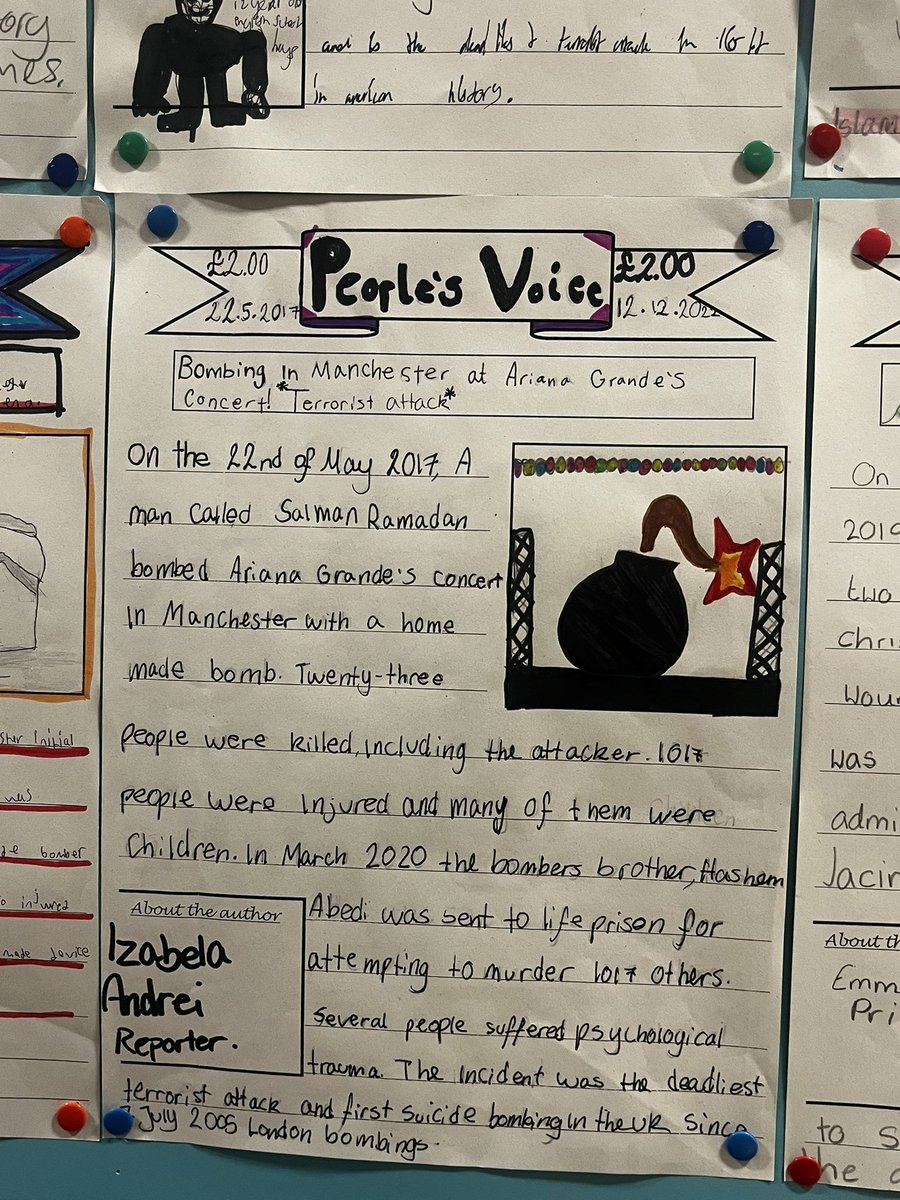 and is the
in american history.
Islam
£2.00
22.5.2017
People's Voice
£2.00
12.12.2022
Bombing in Manchester at Ariana Grande's
Concert! *Terrorist attack*
On the 22nd of May 2017, A
man called Salman Ramadan
bombed Ariana Grande's concert
in Manchester with a home
made bomb. Twenty-three
people were killed, including the attacker. 1017
people were injured and many of them were
Children. In March 2020 the bombers brother, Hashem
Abedi was sent to life prison for
attempting to murder 1017 others.
Several people suffered psychological
trauma. The incident was the deadliest
terrorist attack and first suicide bombing in the UK since
7 July 2005 London bombings.
About the author
Izabela
Andrei
Reporter.
initial
was
bomber
injured
On
2019
two
Chri
woun
was
admi
Jacin
About th
Emm
Pri
to s
the a